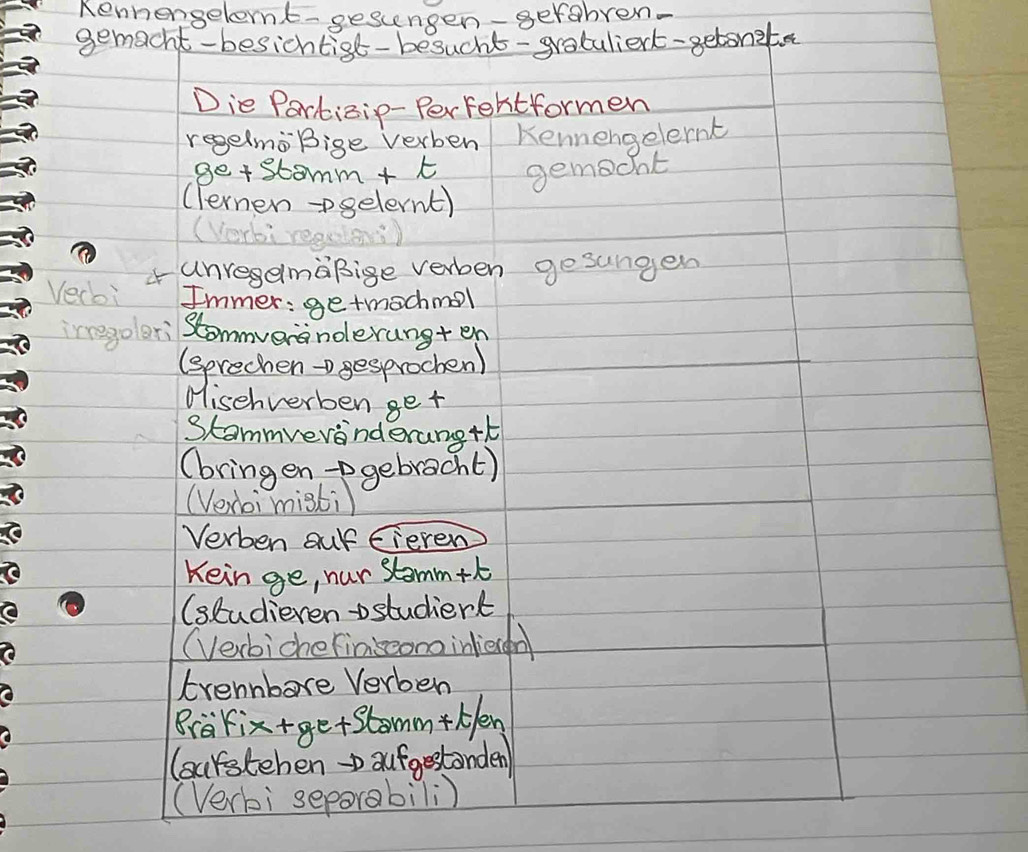 Kennengelernt - gesungen - gefahren -
gemacht - besichtigt - besucht - gratuliert - getanzt
Die Partizip-Perfektformen
regelmäßige verben Kennengelernt
ge + Stamm + t gemacht
(lernen → gelernt)
(Verbi regolari)
unregelmäßige verben gesungen
Verbi Immer: ge + machmal
irregolari Stammveränderung + en
(sprechen → gesprochen)
Mischverben ge +
Stammveränderung + t
(bringen → gebracht)
(Verbi misti)
Verben auf -ieren
Kein ge, nur Stamm + t
(studieren → studiert
(Verbi che finiscono in ieren)
trennbare Verben
Präfix + ge + Stamm + t/en
(aufstehen → aufgestanden)
(Verbi separabili)